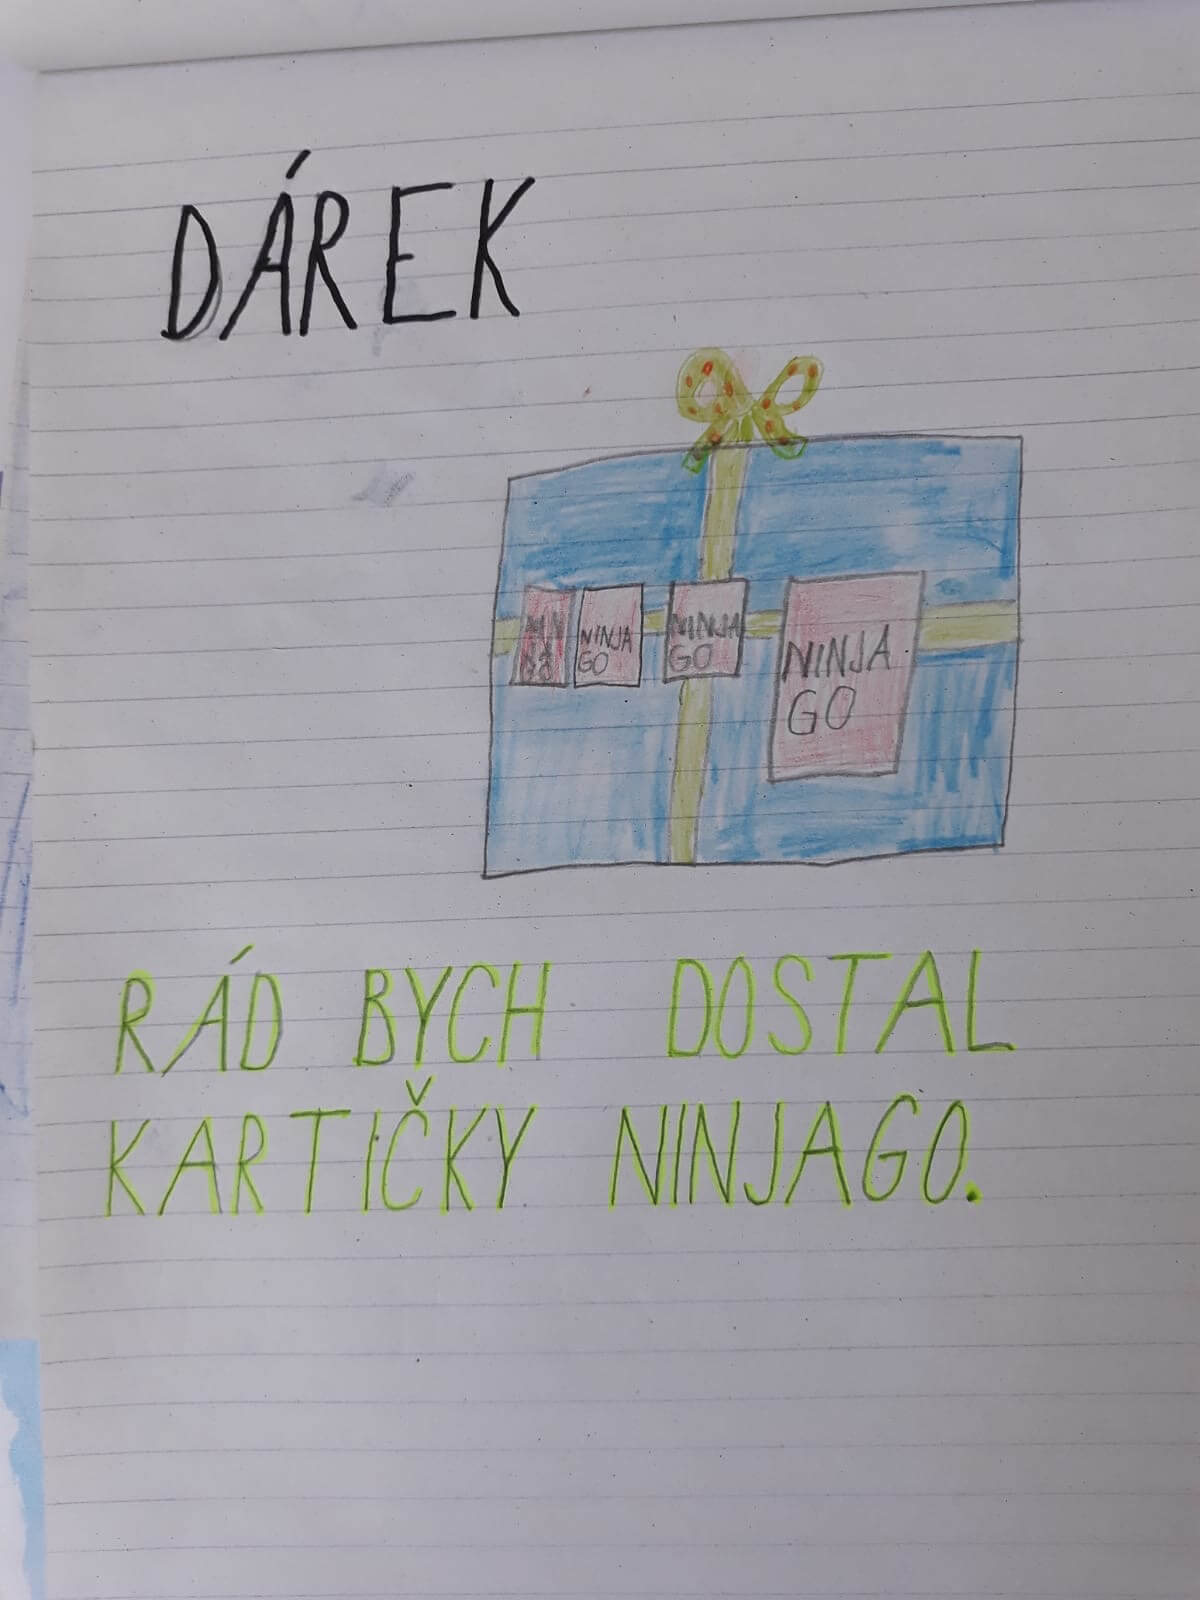 DÁREK
NINJA
GO
NINJA
GO
NINJA
GO
RÁD BYCH DOSTAL
KARTIČKY NINJAGO.